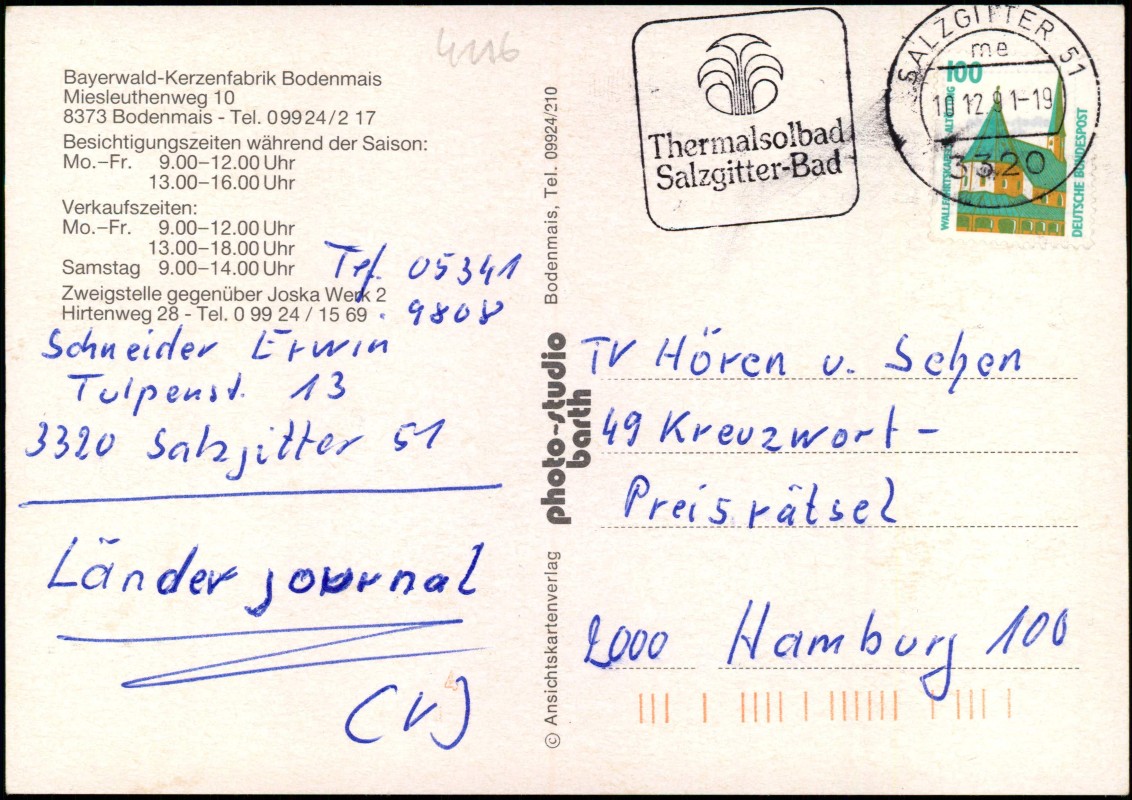 4116
Bayerwald-Kerzenfabrik Bodenmais
Miesleuthenweg 10
8373 Bodenmais - Tel. 09924/2 17
Besichtigungszeiten während der Saison:
Mo.–Fr. 9.00–12.00 Uhr
13.00–16.00 Uhr
Verkaufszeiten:
Mo.–Fr. 9.00–12.00 Uhr
13.00–18.00 Uhr
Samstag 9.00–14.00 Uhr
Zweigstelle gegenüber Joska Werk 2
Hirtenweg 28 - Tel. 0 99 24 / 15 69
Tel. 05341
9808
Schneider Erwin
Tulpenst. 13
3320 Salzgitter 51
Länder journal
(V)
© Ansichtskartenverlag
photo-studio
barth
Bodenmais, Tel. 09924/210
Thermalsolbad
Salzgitter-Bad
SALZGITTER 51
me
10.12.91-19
3320
100
WALLFAHRTSKAPELLE ALTÖTTING
DEUTSCHE BUNDESPOST
TV Hören u. Sehen
49 Kreuzwort-
Preisrätsel
2000 Hamburg 100